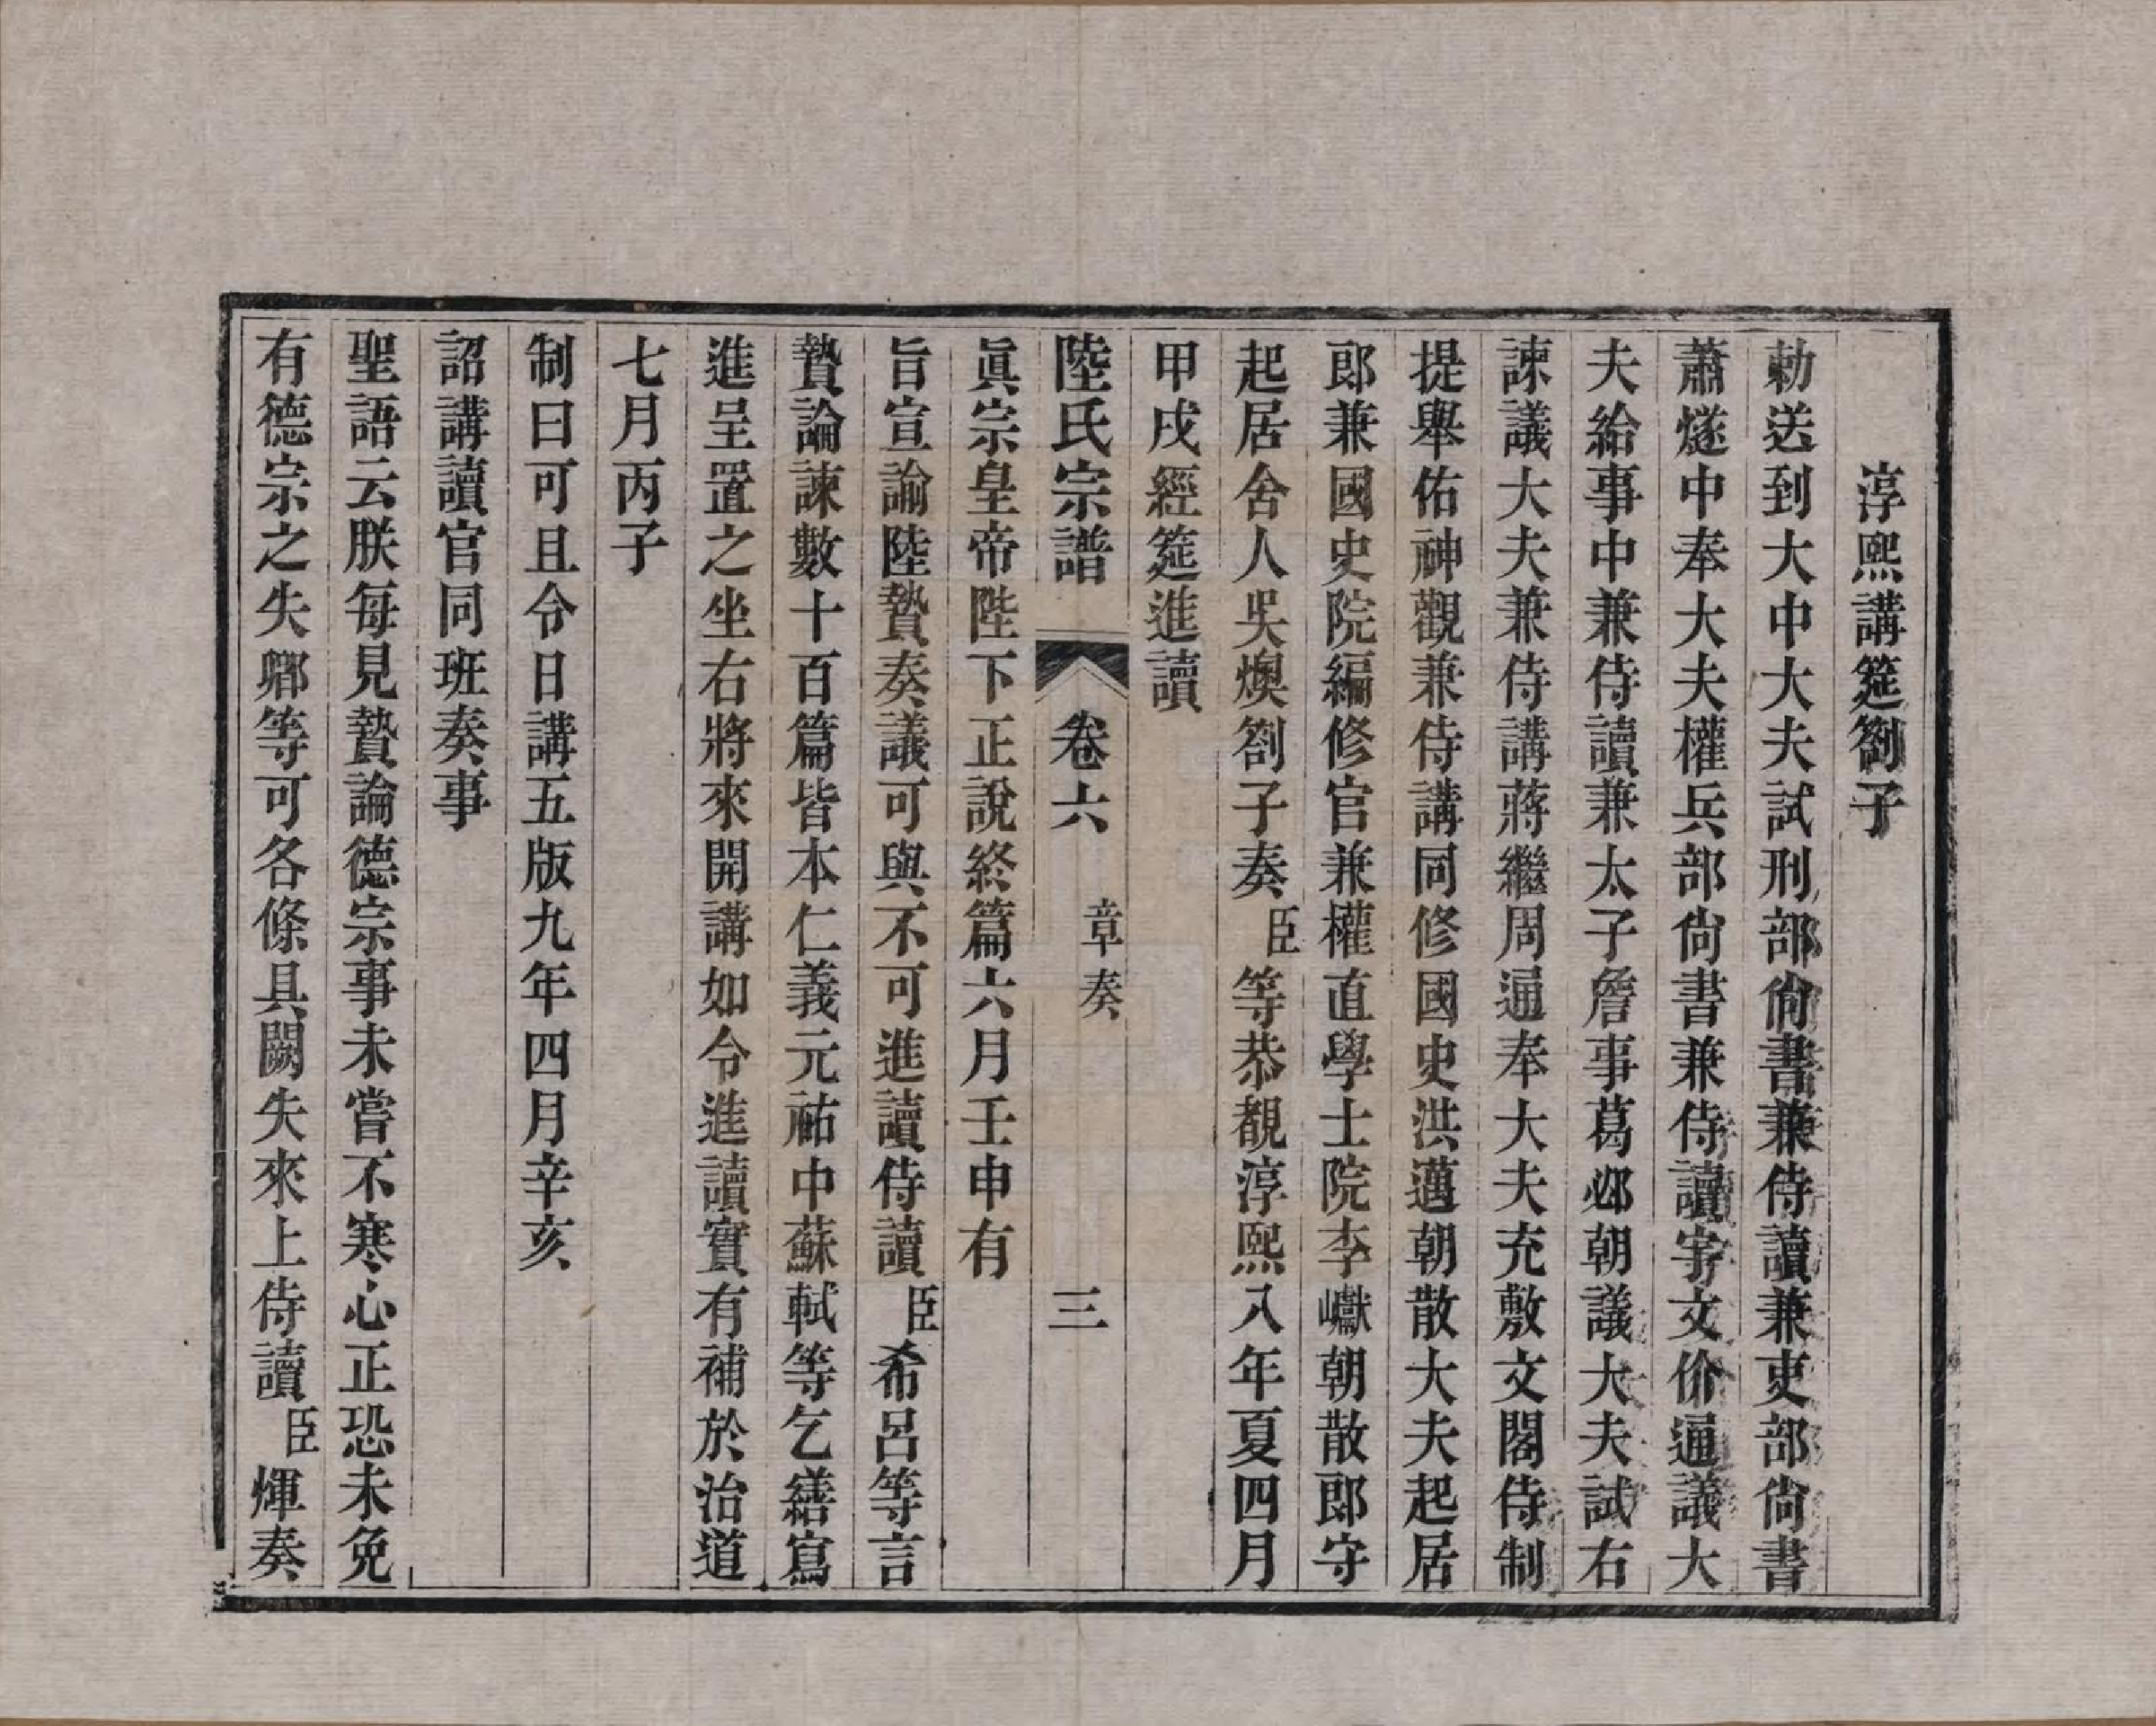 淳熙講筵劄子
勅送到大中大夫試刑部尙書兼侍讀兼吏部尙書
蕭燧中奉大夫權兵部尙書兼侍讀宇文价通議大
夫給事中兼侍讀兼太子詹事葛邲朝議大夫試右
諫議大夫兼侍講蔣繼周通奉大夫充敷文閣侍制
提舉佑神觀兼侍講同修國史洪邁朝散大夫起居
郎兼國史院編修官兼權直學士院李巘朝散郎守
起居舍人吳燠劄子奏臣等恭覩淳熙八年夏四月
甲戌經筵進讀
陸氏宗譜 卷六 章奏 三
眞宗皇帝陛下正說終篇六月壬申有
旨宣諭陸贄奏議可與不可進讀侍讀臣希呂等言
贄論諫數十百篇皆本仁義元祐中蘇軾等乞繕寫
進呈置之坐右將來開講如令進讀實有補於治道
七月丙子
制曰可且令日講五版九年四月辛亥
詔講讀官同班奏事
聖語云朕每見贄論德宗事未嘗不寒心正恐未免
有德宗之失卿等可各條具闕失來上侍讀臣煇奏